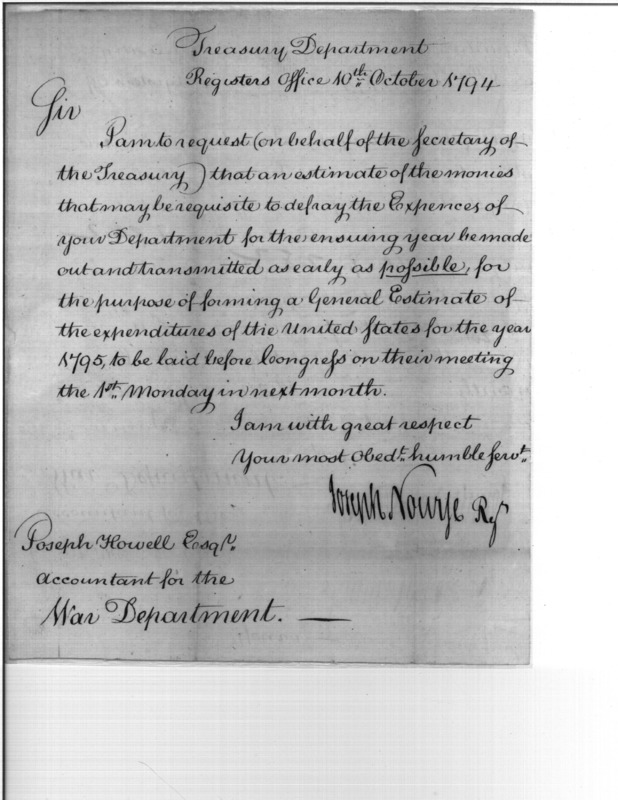 Treasury Department
Registers Office 10th October 1794
Sir
I am to request (on behalf of the Secretary of
the Treasury) that an estimate of the monies
that may be requisite to defray the Expences of
your Department for the ensuing year be made
out and transmitted as early as poſsible, for
the purpose of forming a General Estimate of
the expenditures of the United States for the year
1795, to be laid before Congreſs on their meeting
the 1st. Monday in next month.
I am with great respect
Your most Obedt. humble servt.
Joseph Nourse Regr
Joseph Howell Esqr.
Accountant for the
War Department. —